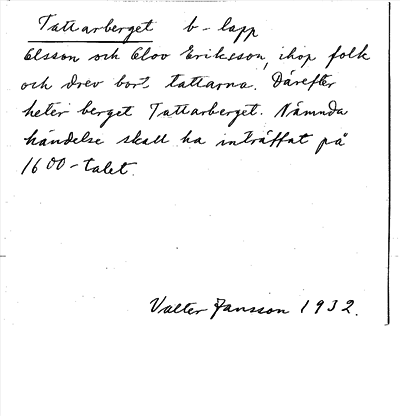 Tattarberget b-lapp
Olsson och Olov Eriksson, ihop folk
och drev bort tattarna. Därefter
heter berget Tattarberget. Nämnda
händelse skall ha inträffat på
1600-talet.
Valter Jansson 1932.